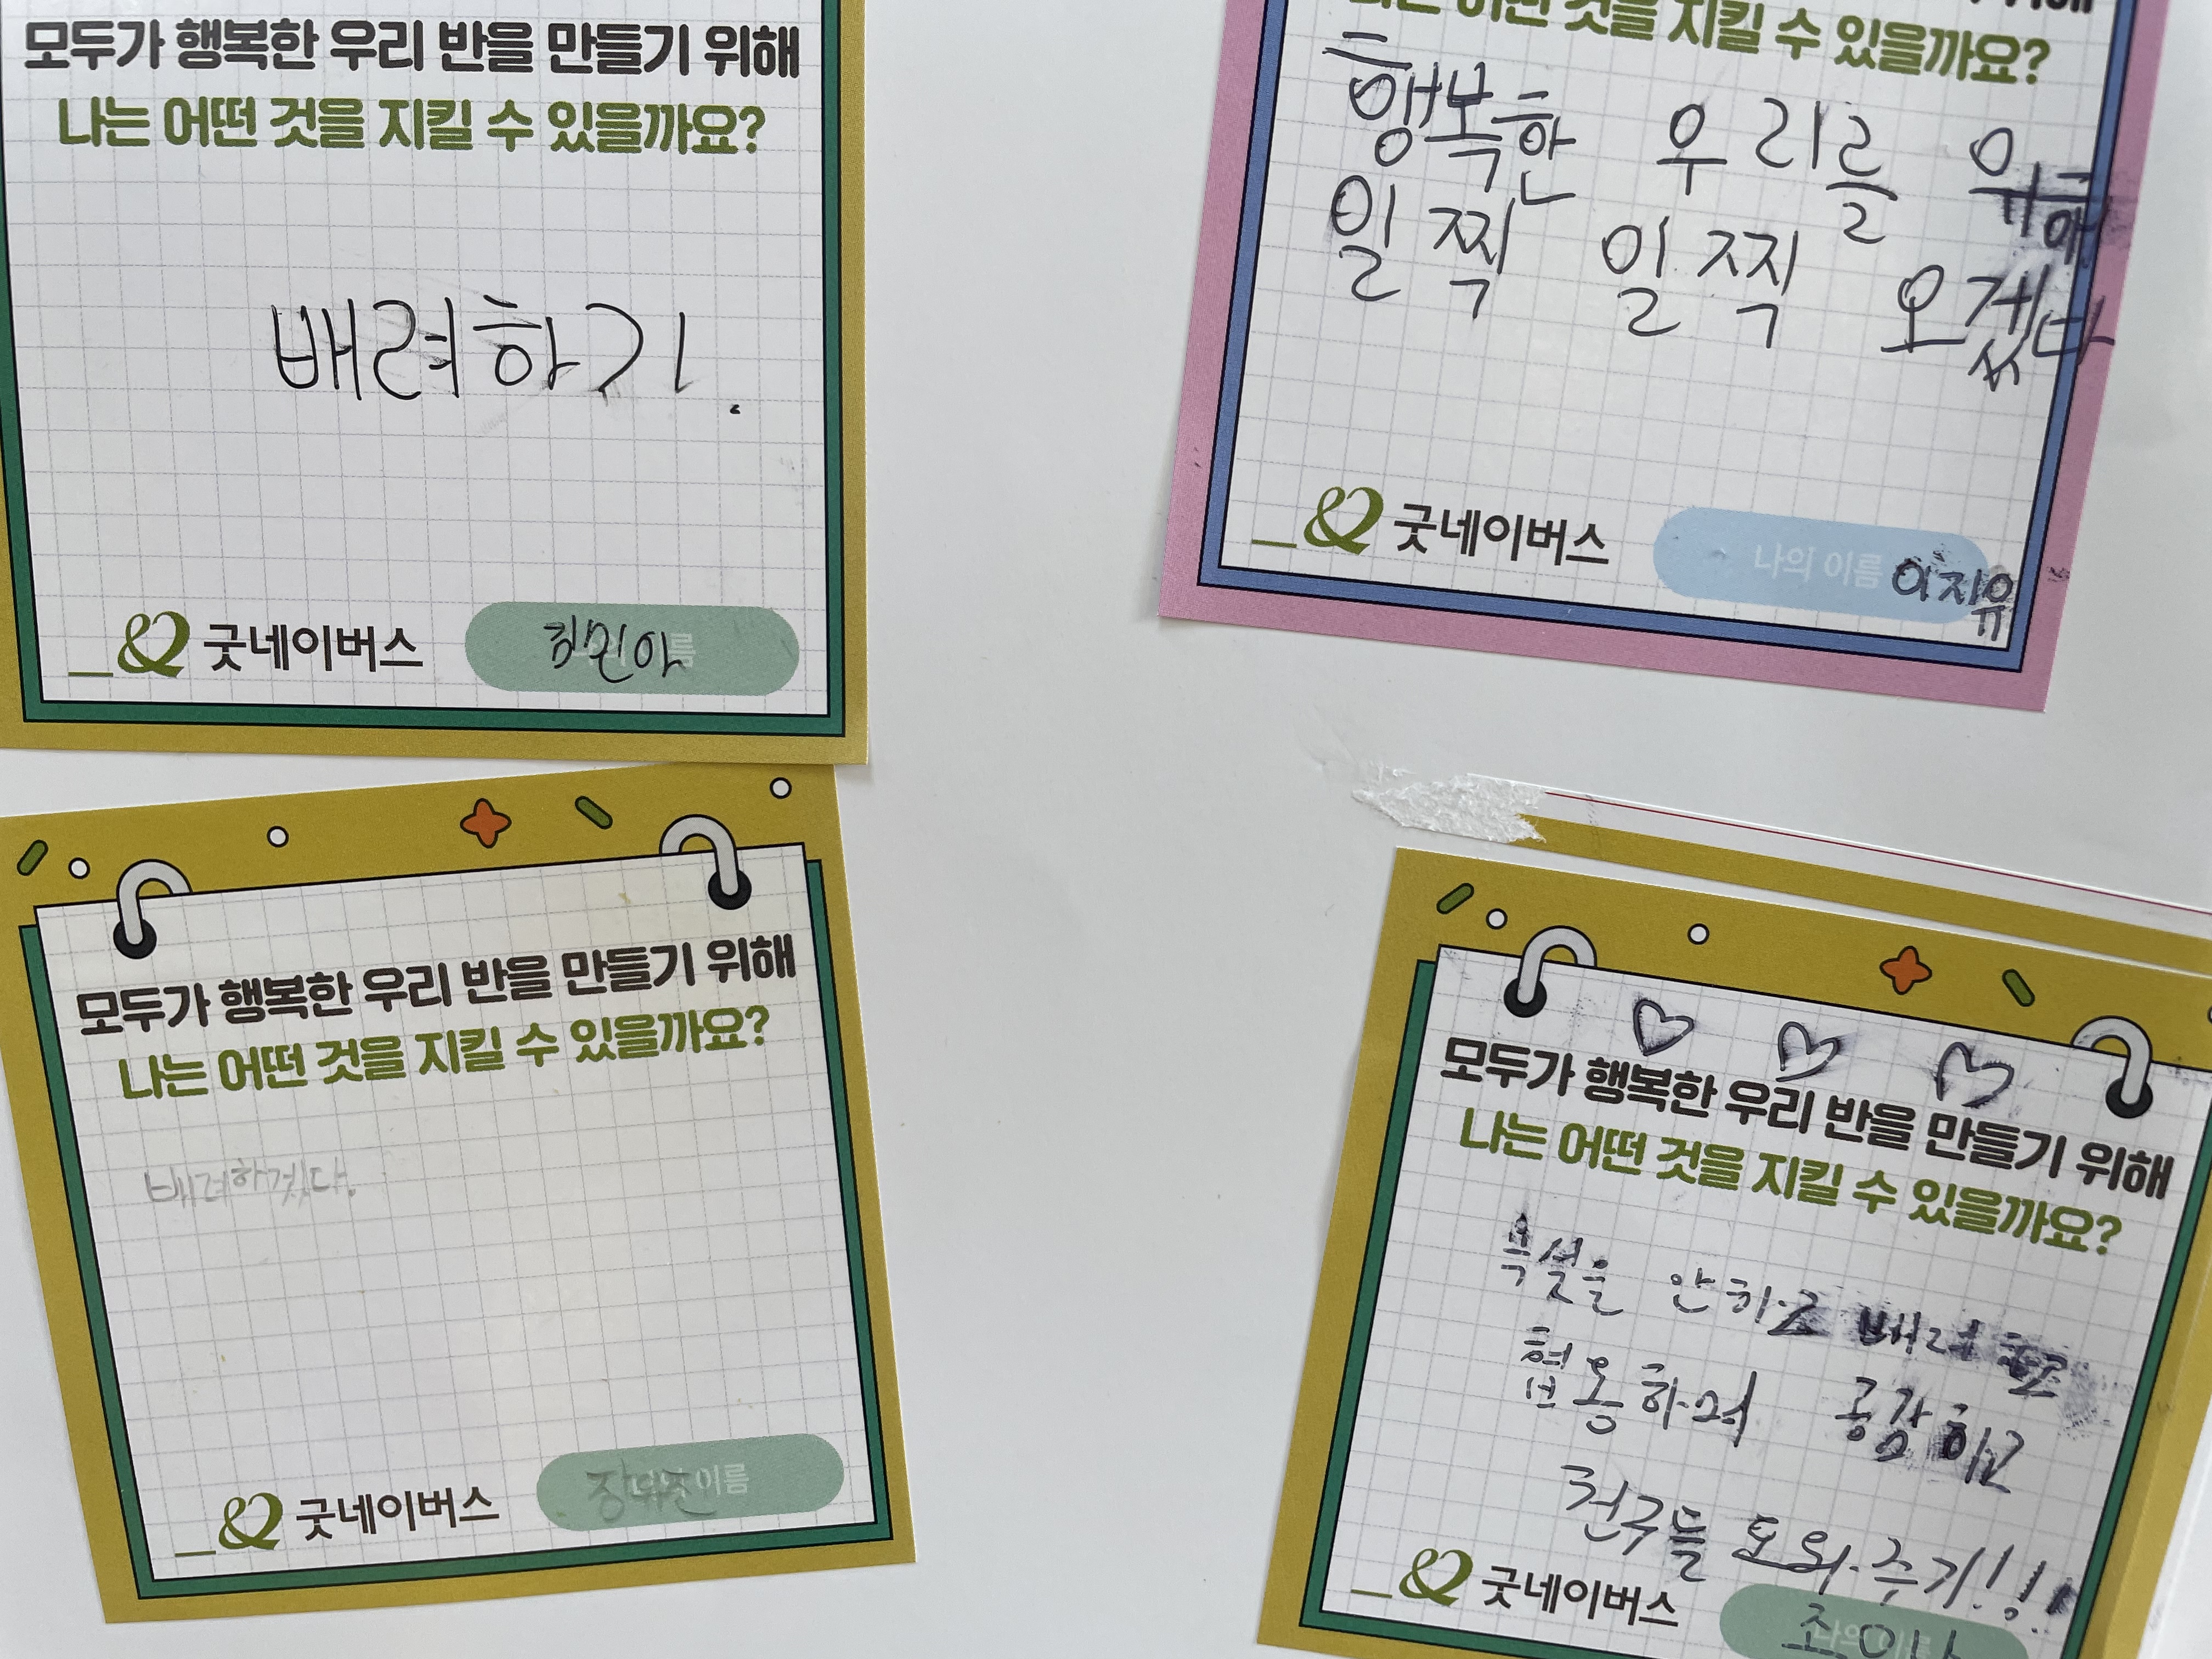 모두가 행복한 우리 반을 만들기 위해
나는 어떤 것을 지킬 수 있을까요?
배려하기.
굿네이버스
민아
나는 어떤 것을 지킬 수 있을까요?
행복한 우리를 위해
일찍 일찍 오겠다
굿네이버스
나의 이름
이지유
모두가 행복한 우리 반을 만들기 위해
나는 어떤 것을 지킬 수 있을까요?
배려하겠다.
굿네이버스
이름
모두가 행복한 우리 반을 만들기 위해
나는 어떤 것을 지킬 수 있을까요?
욕설을 안하고 배려
협동하며 공감하고
친구들 도와주기!!!
굿네이버스